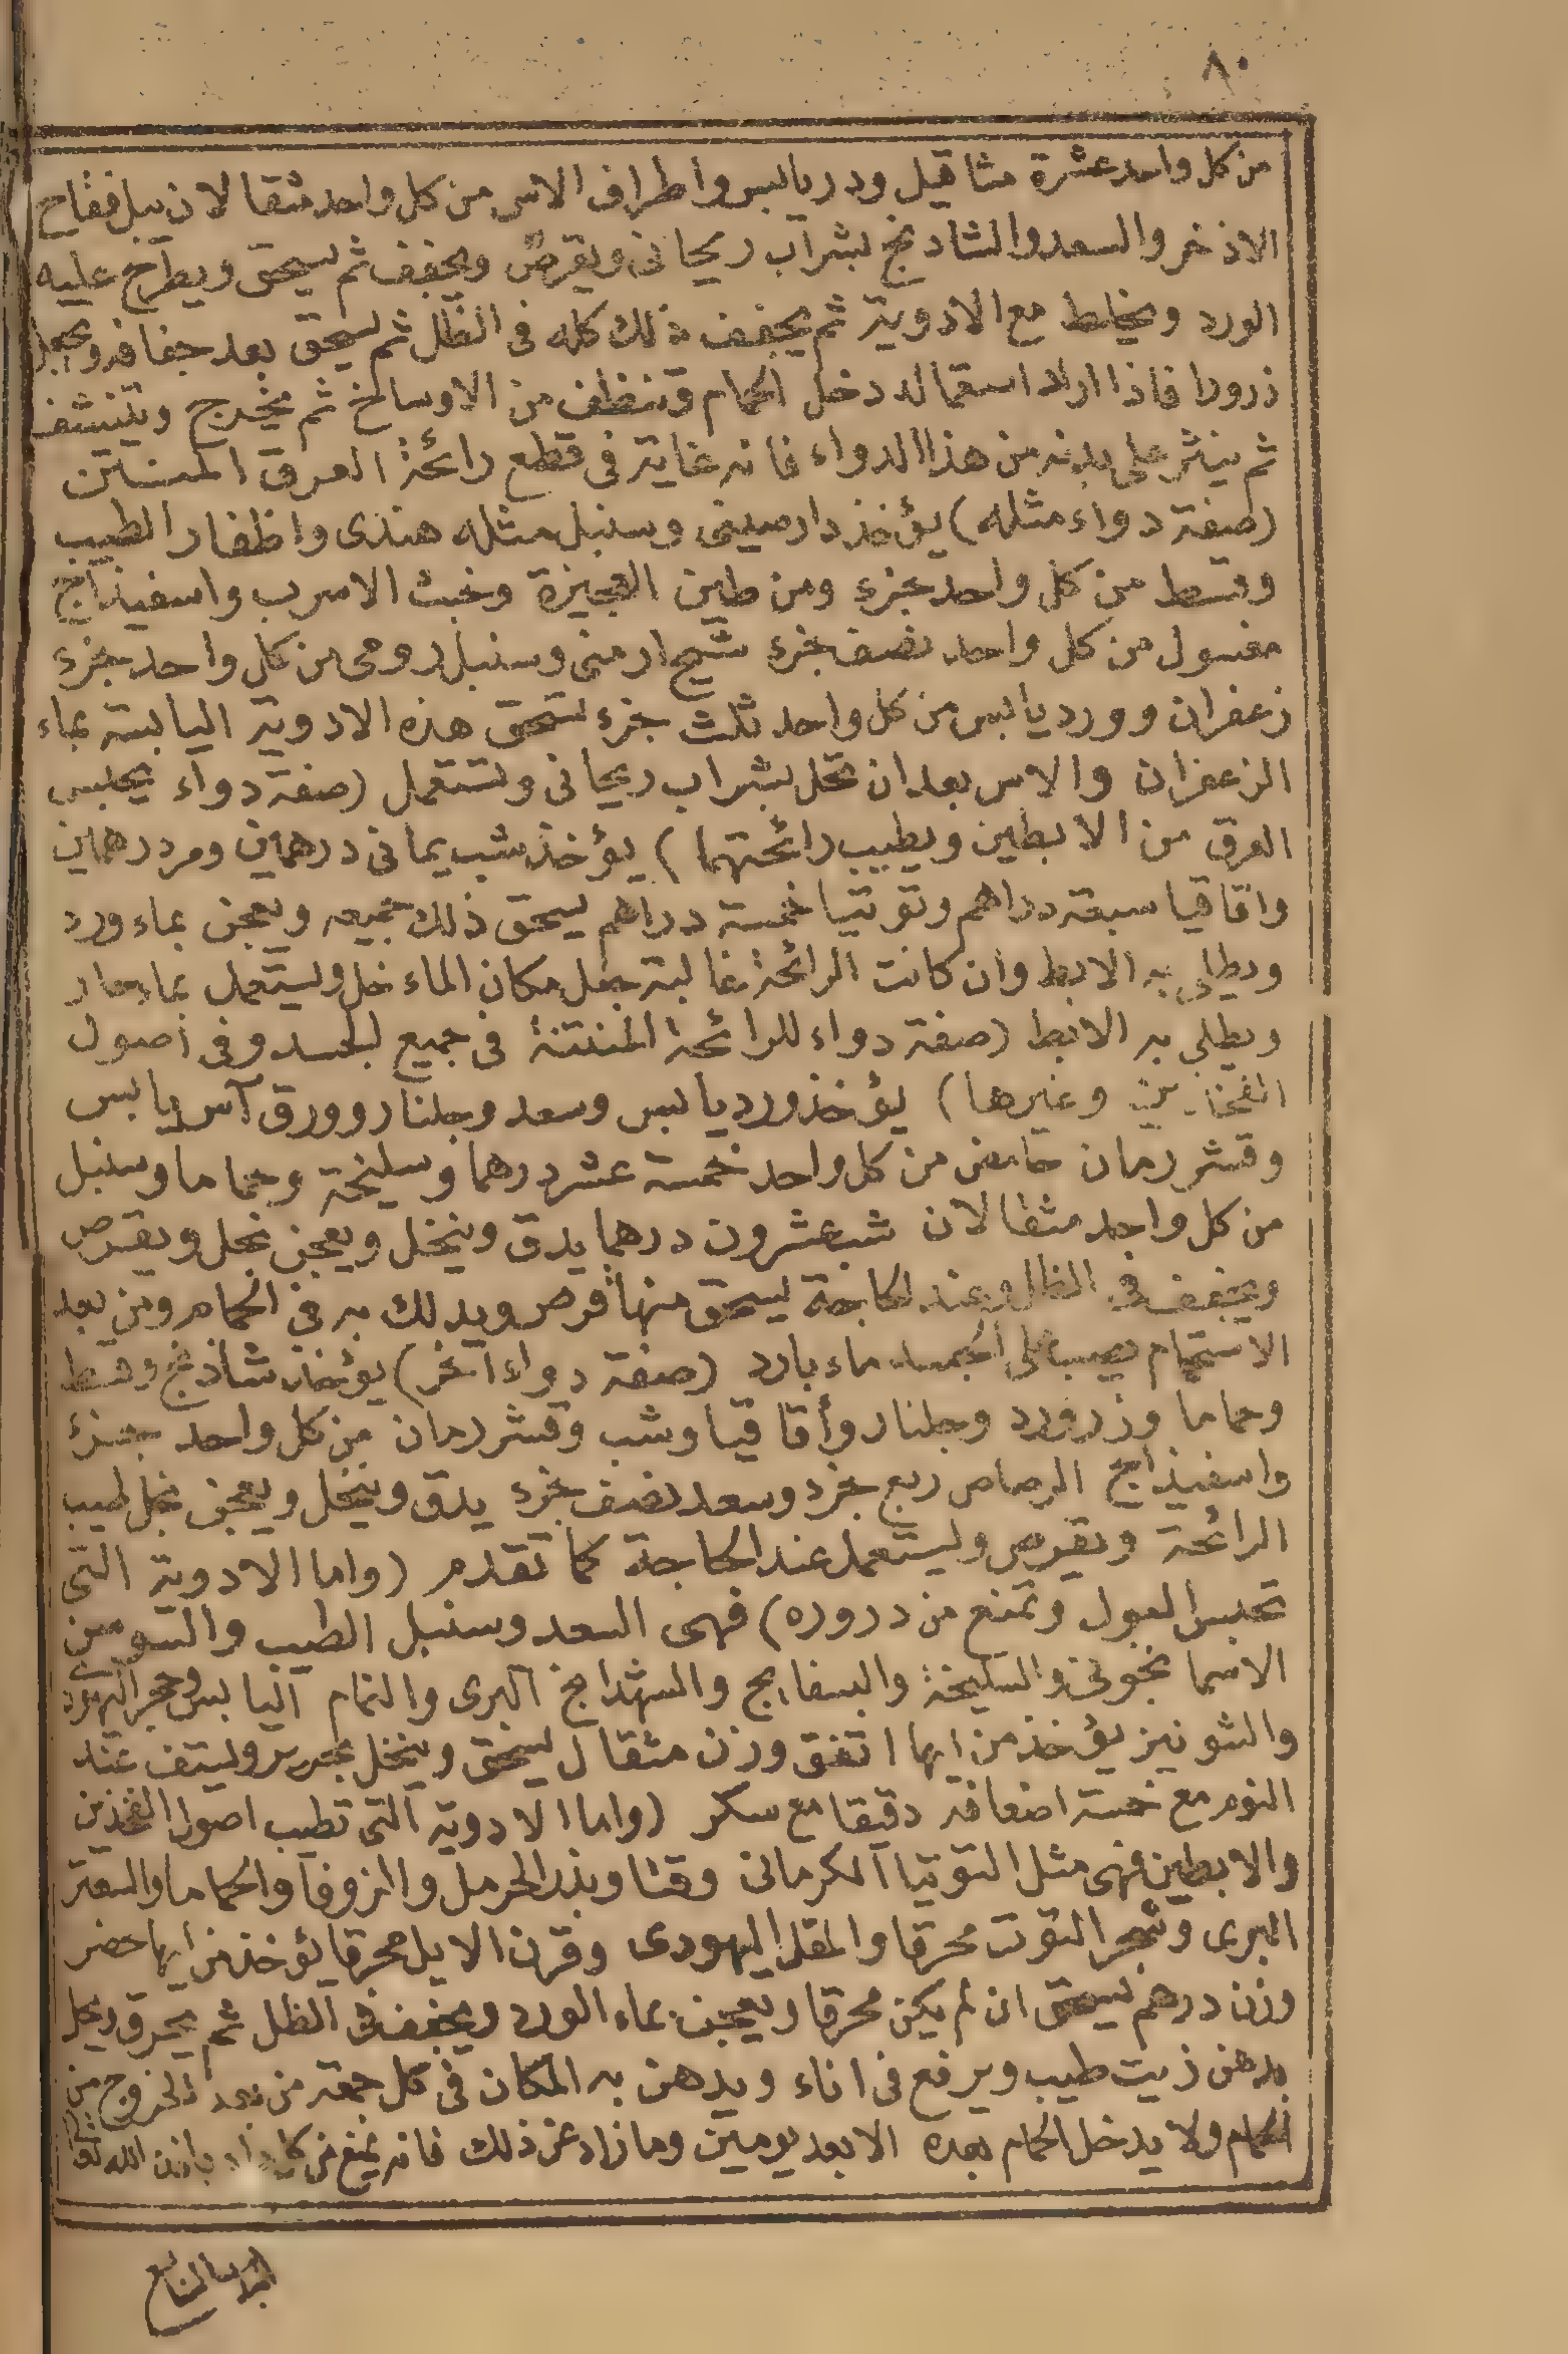 ٨٠
من كل واحد عشرة مثاقيل ودر يابس واطراف الاس من كل واحد مثقالان يبل فقاح
الاذخر والسعد والشادنج بشراب ريحانى ويقرص ويجفف ثم يسحق ويطرح عليه
الورد ويخلط مع الادوية ثم يجفف ذلك كله فى الظل ثم يسحق بعد جفافه ويجعل
ذرورا فاذا اراد استعماله دخل الحمام وتنظف من الاوساخ ثم يخرج ويتنشف
ثم ينثر على بدنه من هذا الدواء فانه غاية فى قطع رائحة العرق المنتن
(صفة دواء مثله) يؤخذ دارصينى وسنبل مثله هندى واظفار الطيب
وقسط من كل واحد جزء ومن طين البحيرة وخبث الاسرب واسفيذاج
مغسول من كل واحد نصف جزء شيح ارمنى وسنبل رومى من كل واحد جزء
زعفران وورد يابس من كل واحد ثلث جزء تسحق هذه الادوية اليابسة بماء
الزعفران والاس بعد ان تحل بشراب ريحانى وتستعمل (صفة دواء يحبس
العرق من الابطين ويطيب رائحتهما) يؤخذ شب يمانى درهمين ومر درهمين
واقاقيا سبعة دراهم وتوتيا خمسة دراهم يسحق ذلك جميعه ويعجن بماء ورد
ويطلى به الابط وان كانت الرائحة غالبة جعل مكان الماء خل ويستعمل بماء حار
ويطلى به الابط (صفة دواء للرائحة المنتنة فى جميع الجسد وفى اصول
الفخذين وغيرها) يؤخذ ورد يابس وسعد وجلنار وورق آس يابس
وقشر رمان حامض من كل واحد خمسة عشر درهما وسليخة وحماما وسنبل
من كل واحد مثقالان شب عشرون درهما يدق وينخل ويعجن بخل ويقرص
ويجفف فى الظل وعند الحاجة يسحق منها قرص ويدلك به فى الحمام ومن بعد
الاستحمام يصب على الجسد ماء بارد (صفة دواء آخر) يؤخذ شاذنج وقسط
وحماما وزرورد وجلنار وأقاقيا وشب وقشر رمان من كل واحد جزء
واسفيذاج الرصاص ربع جزء وسعد نصف جزء يدق وينخل ويعجن بخل طيب
الرائحة ويقرص ويستعمل عند الحاجة كما تقدم (واما الادوية التى
تحبس البول وتمنع من دروره) فهى السعد وسنبل الطيب والسوسن
الاسمانجونى والسليخة والبسفايج والشهدانج البرى والنمام اليابس وحجر اليهود
والشونيز يؤخذ من ايها اتفق وزن مثقال يسحق وينخل بحرير ويستف عند
النوم مع خمسة اضعافه دقيقا مع سكر (واما الادوية التى تطيب اصول الفخذين
والابطين فهى مثل التوتيا الكرمانى وقنا وبذر الحرمل والزوفا والحماما والسعتر
البرى وشجر التوت محرقا والمقل اليهودى وقرن الايل محرقا يؤخذ من ايها حضر
وزن درهم يسحق ان لم يكن محرقا ويعجن بماء الورد ويجفف فى الظل ثم يحرق ويحل
بدهن زيت طيب ويرفع فى اناء ويدهن به المكان فى كل جمعة من بعد الخروج من
الحمام ولا يدخل الحمام بعده الا بعد يومين وما زاد عن ذلك فانه يمنع من باذن الله تعالى
الباب